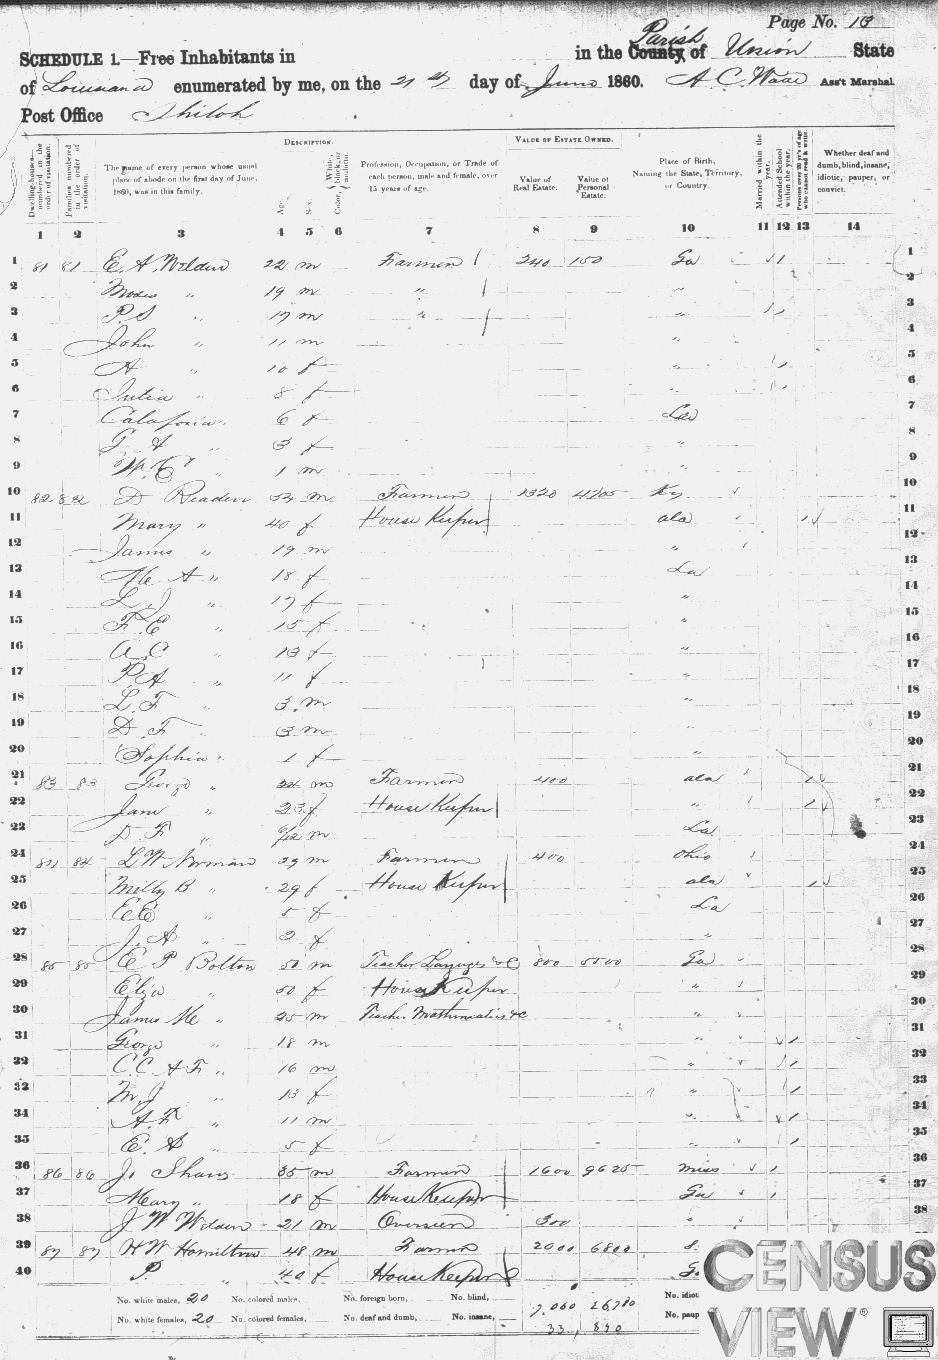 Page No. 10
SCHEDULE 1.—Free Inhabitants in in the County Parish of Union State
of Louisiana enumerated by me, on the 21 day of June 1860. Ass't Marshal
Post Office Shiloh
DESCRIPTION. VALUE OF ESTATE OWNED.
Dwelling-houses—numbered in the order of visitation.
Families numbered in the order of visitation.
The name of every person whose usual place of abode on the first day of June, 1860, was in this family.
Age. Sex. Color, White, black, or mulatto.
Profession, Occupation, or Trade of each person, male and female, over 15 years of age.
Value of Real Estate. Value of Personal Estate.
Place of Birth, Naming the State, Territory, or Country.
Married within the year.
Attended School within the year.
Persons over 20 y'rs of age who cannot read & write.
Whether deaf and dumb, blind, insane, idiotic, pauper, or convict.
1 2 3 4 5 6 7 8 9 10 11 12 13 14
1 81 81 E. A. Wilden 22 m Farmer 240 150 Ga 1
2 Moses " 19 m " " 3
3 P. S " 17 m " " 3
4 John " 11 m " 4
5 A " 10 f " 5
6 " 8 f " 6
7 " 6 f La 7
8 G A " 3 f " 8
9 " 1 m " 9
10 82 82 D Readen 54 m Farmer 1320 Ky 10
11 Mary " 40 f House Keeper ala 11
12 James " 19 m " 12
13 Mc A " 18 f La 13
14 L. J " 17 f " 14
15 F. E " 15 f " 15
16 A. C " 13 f " 16
17 P A " 11 f " 17
18 L. F " 3 m " 18
19 D. F " 3 m " 19
20 Sophia " 1 f " 20
21 83 83 George " 24 m Farmer 400 ala 21
22 Jane " 23 f House Keeper " 22
23 D. F " m La 23
24 84 84 L W Norman 39 m Farmer 400 Ohio 24
25 Milly B " 29 f House Keeper ala 25
26 E E " 5 f La 26
27 J. A " 2 f " 27
28 85 85 E P Bolton 50 m Teacher Languages &c 800 5500 Ga 28
29 Eliza " 50 f House Keeper " 29
30 James Mc " 25 m Teacher Mathematics &c " 30
31 George " 18 m " 31
32 C. C. A F. " 16 m " 32
33 M. J " 13 f " 33
34 A. F. " 11 m " 34
35 E. A " 5 f " 35
36 86 86 J. Shaw 35 m Farmer 1600 9625 Miss 36
37 Mary " 18 f House Keeper Ga 37
38 J W Wilden 21 m Overseer 300 " 38
39 87 87 H W Hamilton 48 m Farmer 2000 6800 S.
40 P. " 40 f House Keeper G
No. white males, 20 No. colored males, No. foreign born, No. blind, 7,060 26,780 No. idiot
No. white females, 20 No. colored females, No. deaf and dumb, No. insane, No. paup
33,840
CENSUS
VIEW®